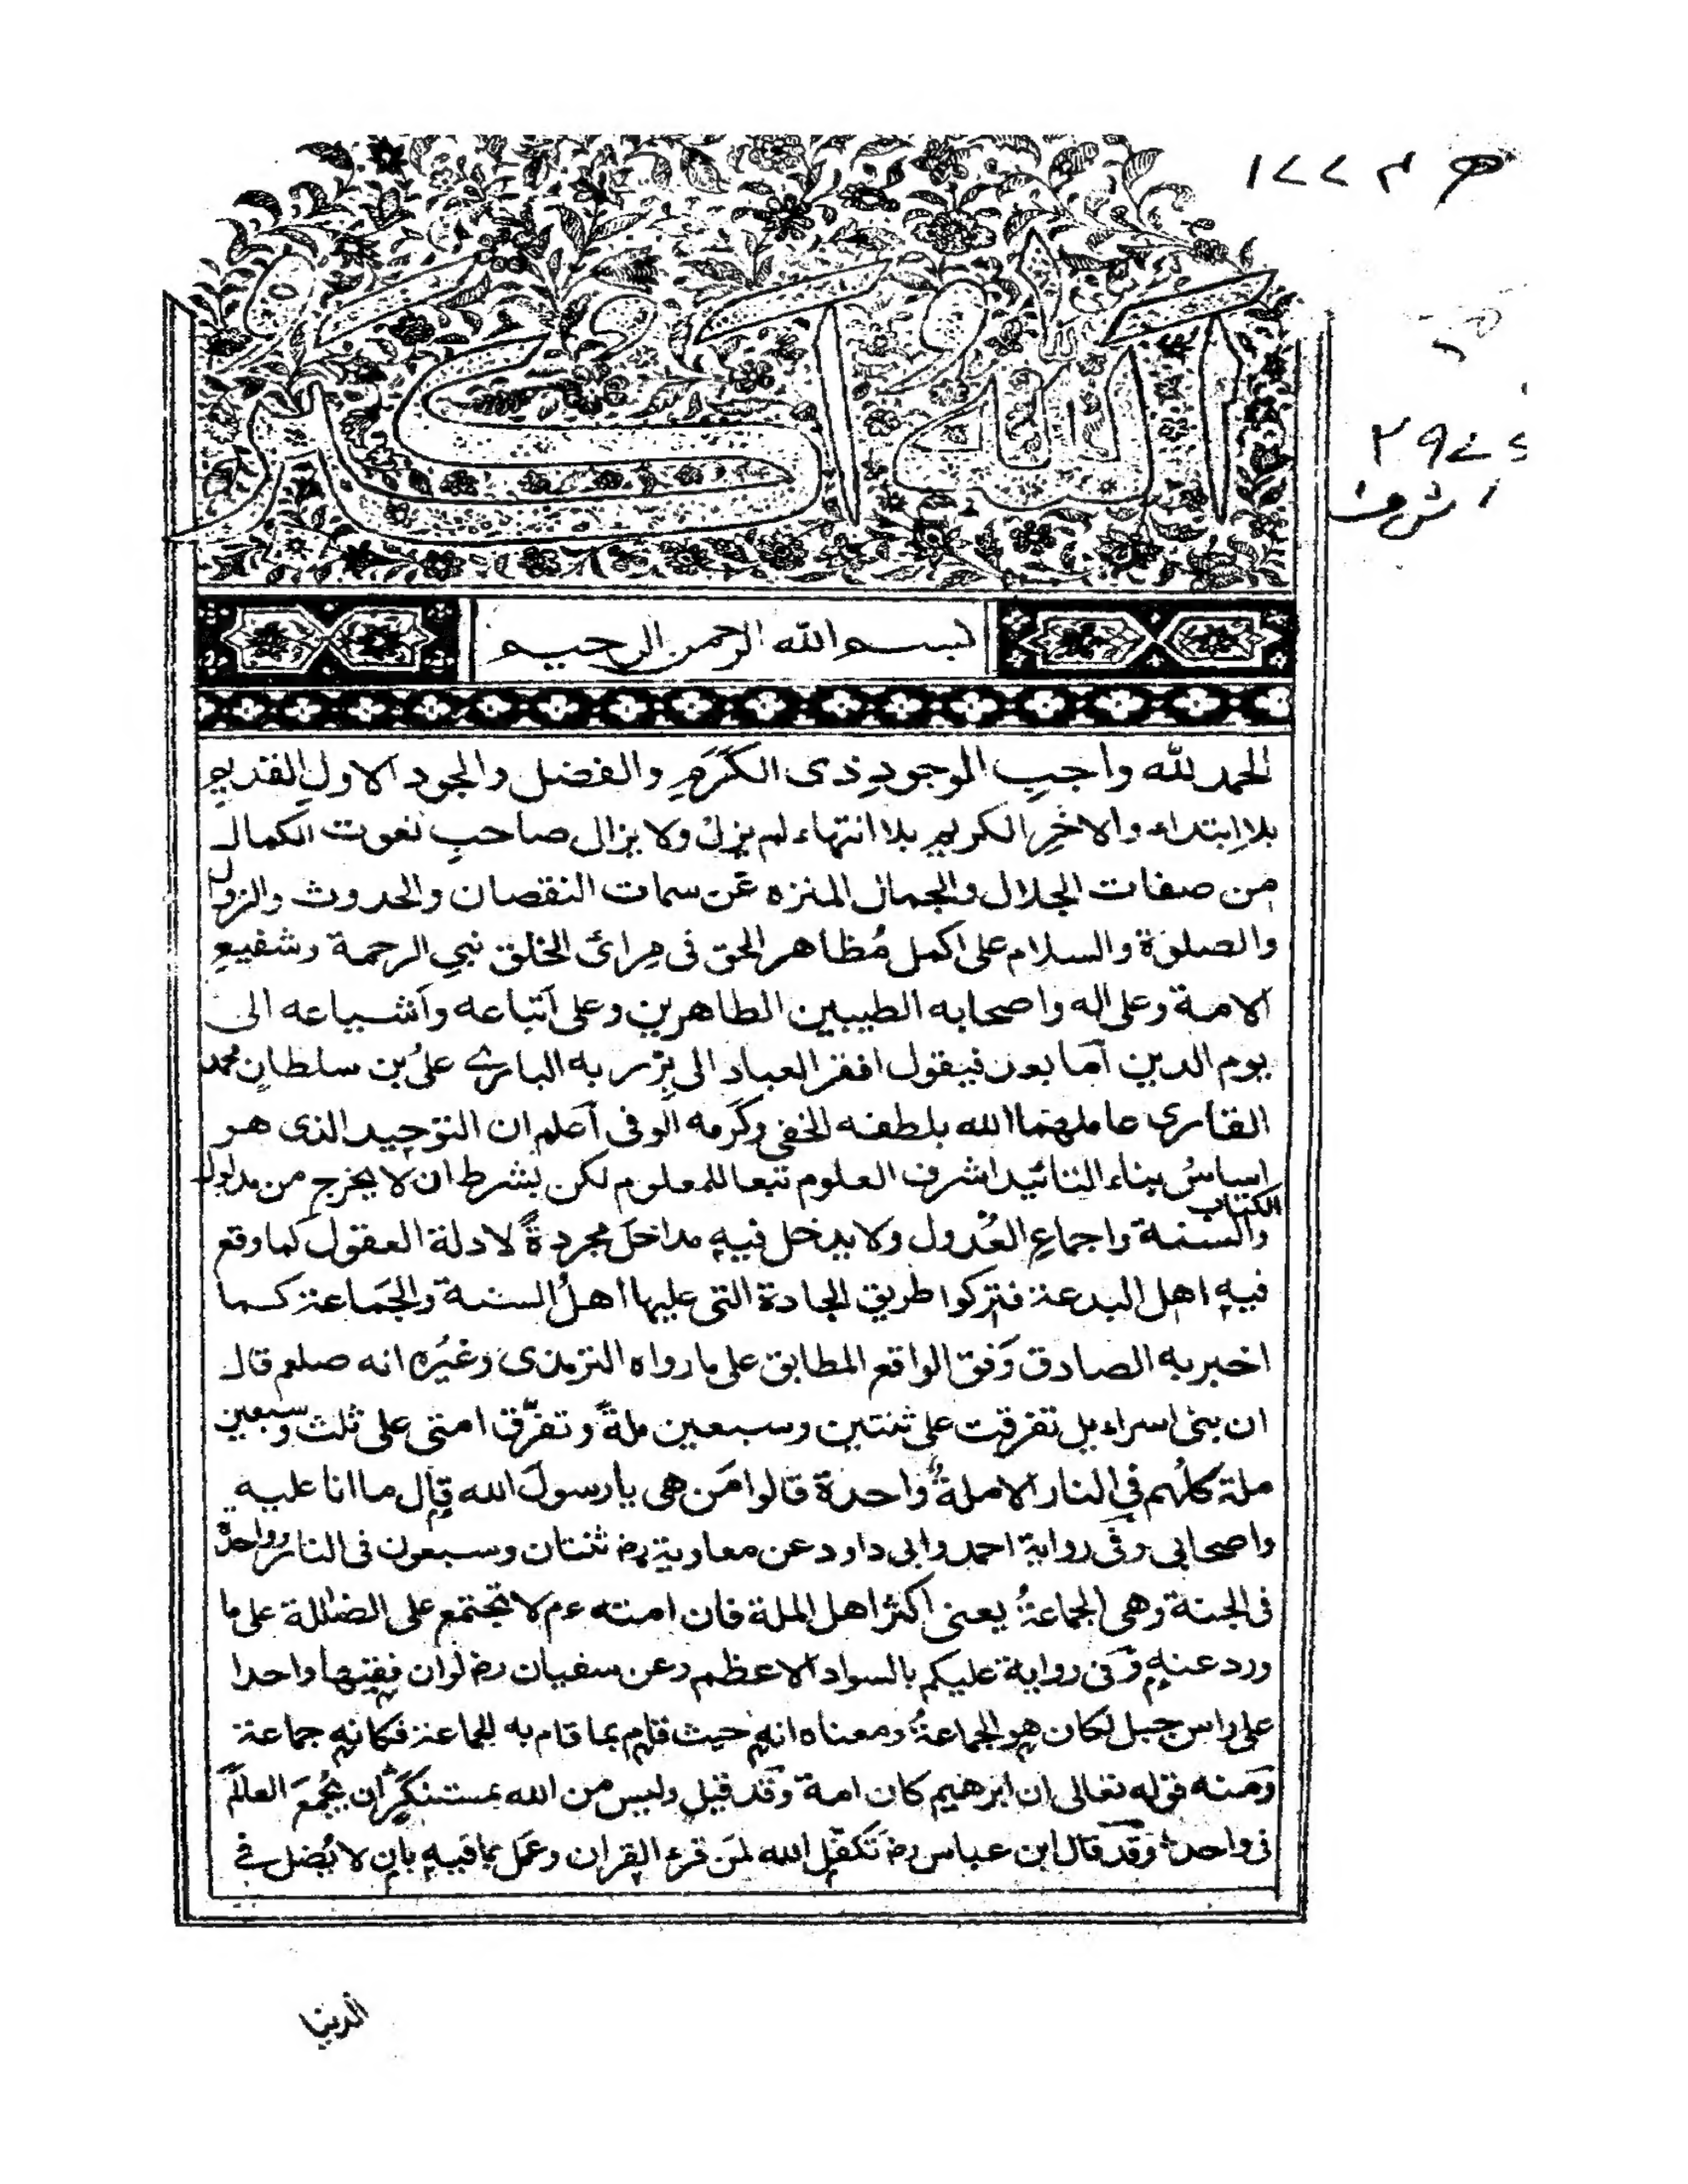 الله اكبر
بسم الله الرحمن الرحيم
الحمد لله واجبِ الوجودِ ذى الكَرَمِ والفضل والجود الاولِ القديمِ
بلا اِبتداء والاخرِ الكريم بلا انتهاء لم يزلْ ولا يزال صاحبِ نعوت الكمال
من صفات الجلال والجمال المنزه عَن سمات النقصان والحدوث والزوال
والصلوة والسلام على اكمل مُظاهر الحق فى مِرائ الخلق نبي الرحمة وشفيعِ
الامة وعلى اله واصحابه الطيبين الطاهرين وعلى اَتباعه واَشياعه الى
يوم الدين اَما بعدُ فيقول افقر العباد الى بِرّ ربه البارى علىُ بن سلطانِ محمد
القارى عاملهما الله بلطفه الخفى وكَرَمه الوفى اَعلم ان التوحيد الذى هو
اساسُ بناء التائيد اشرف العلوم تبعا للمعلوم لكن بشرط ان لا يخرج من مدلول
الكتاب
والسنة واجماعِ العُدول ولا يدخل فيه مداخلَ مجردةً لادلة العقول كما وقع
فيه اهل البدعة فتركوا طريق الجادة التى عليها اهلُ السنة والجَماعة كما
اخبر به الصادق وَفق الواقع المطابق على ما رواه الترمذى وغيُره انه صلعم قال
ان بنى اسراءيل تفرقت على ثنتين وسبعين ملةً وتفرّق امتى على ثلث وسبعين
ملة كلُهم فى النار الا ملةً واحدة قالوا مَن هى يا رسولَ الله قال ما انا عليه
واصحابى وفى رواية احمد وابى داود عن معاوية رض ثنتان وسبعون فى النار وواحدة
فى الجنة وهى الجماعةُ يعنى اكثر اهل الملة فان امته عم لا تجتمع على الضلالة على ما
ورد عنه وفى رواية عليكم بالسواد الاعظم وعن سفيان رض لو ان فقيها واحدا
على راس جبل لكان هو الجماعةُ ومعناه انه حيث قام بما قام به الجماعة فكانه جماعة
ومنه قوله تعالى ان ابرهيم كان امة وقد قيل وليس من الله بمستنكَرٍ ان يَجمعَ العالَمَ
فى واحد وقد قال ابن عباس رض تَكفّل الله لمَن قرء القران وعَمل بما فيه بان لا يَضل فى
الدنيا